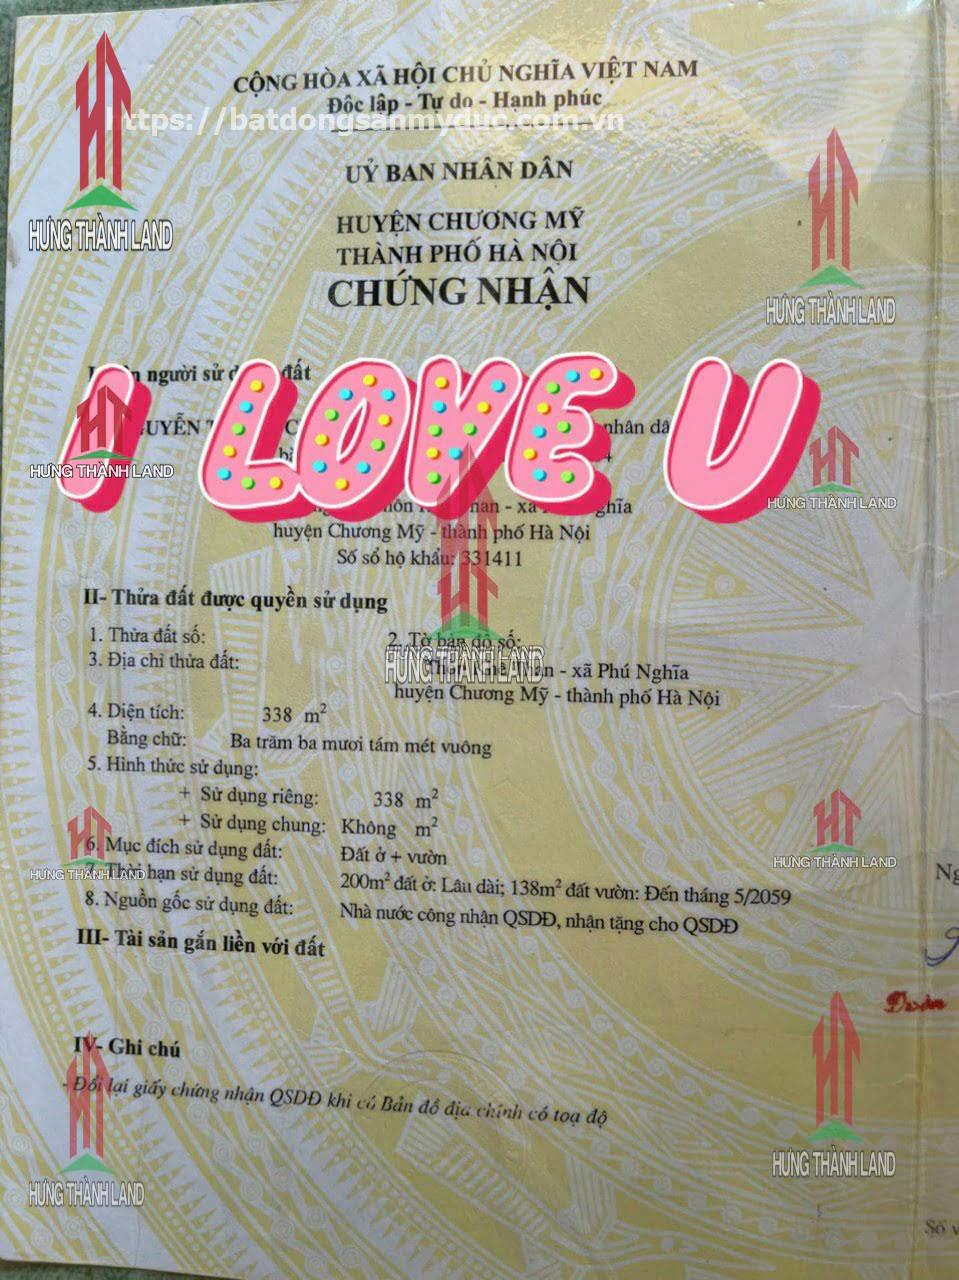 CỘNG HÒA XÃ HỘI CHỦ NGHĨA VIỆT NAM
Độc lập - Tự do - Hạnh phúc
https://batdongsanmyduc.com.vn
UỶ BAN NHÂN DÂN
HUYỆN CHƯƠNG MỸ
THÀNH PHỐ HÀ NỘI
CHỨNG NHẬN
HƯNG THÀNH LAND
HƯNG THÀNH LAND
người sử đất
I LOVE U
nhân
HƯNG THÀNH LAND
HƯNG THÀNH LAND
- xã
huyện Chương Mỹ - thành phố Hà Nội
Số sổ hộ khẩu: 331411
II- Thửa đất được quyền sử dụng
1. Thửa đất số: 2. Tờ bản đồ số:
3. Địa chỉ thửa đất: - xã Phú Nghĩa
HƯNG THÀNH LAND
huyện Chương Mỹ - thành phố Hà Nội
4. Diện tích: 338 m²
Bằng chữ: Ba trăm ba mươi tám mét vuông
5. Hình thức sử dụng:
+ Sử dụng riêng: 338 m²
+ Sử dụng chung: Không m²
6. Mục đích sử dụng đất: Đất ở + vườn
HƯNG THÀNH LAND
HƯNG THÀNH LAND
7. Thời hạn sử dụng đất: 200m² đất ở: Lâu dài; 138m² đất vườn: Đến tháng 5/2059
8. Nguồn gốc sử dụng đất: Nhà nước công nhận QSDĐ, nhận tặng cho QSDĐ
III- Tài sản gắn liền với đất
IV- Ghi chú
- Đổi lại giấy chứng nhận QSDĐ khi có Bản đồ địa chính có toạ độ
HƯNG THÀNH LAND
HƯNG THÀNH LAND
Số